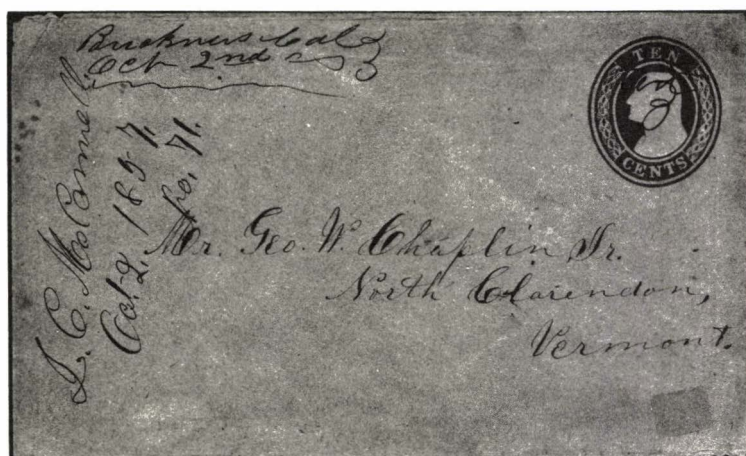 Buckners Cal
Oct 2nd
TEN
CENTS
Oct. 2. 1857.
No. 71.
Mr. Geo. W. Chaplin Jr.
North Clarendon,
Vermont.